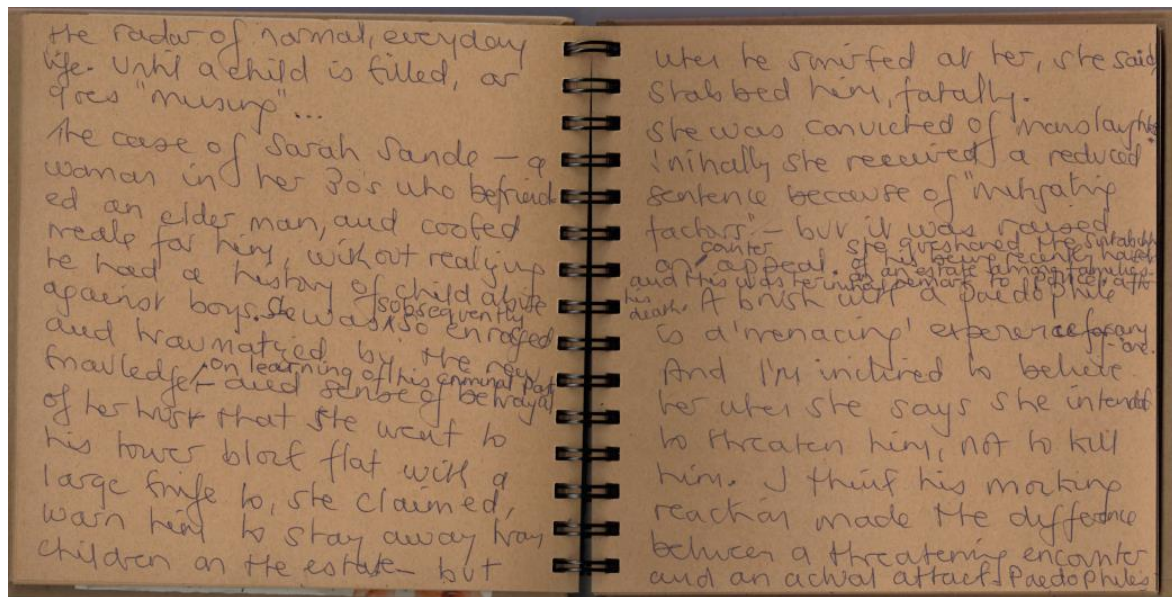 the radar of normal, everyday
life. Until a child is killed, or
goes "missing"...
The case of Sarah Sands – a
woman in her 30s who befriend
ed an elder man, and cooked
meals for him, without realizing
he had a history of child abuse
against boys. She was so enraged
subsequently
and traumatized by the new
knowledge – and sense of betrayal
on learning of his criminal past
of her trust that she went to
his tower block flat with a
large knife to, she claimed,
warn him to stay away from
children on the estate – but
when he smirked at her, she said,
stabbed him, fatally.
She was convicted of manslaughter.
Initially she received a reduced
sentence because of "mitigating
factors" – but it was raised
on counter appeal. She questioned the suitability
of his being recently housed
on an estate among families –
and this was her initial remark to police, after
his death. A brush with a paedophile
is a 'menacing' experience for any
one.
And I'm inclined to believe
her when she says she intended
to threaten him, not to kill
him. I think his mocking
reaction made the difference
between a threatening encounter
and an actual attack. Paedophiles